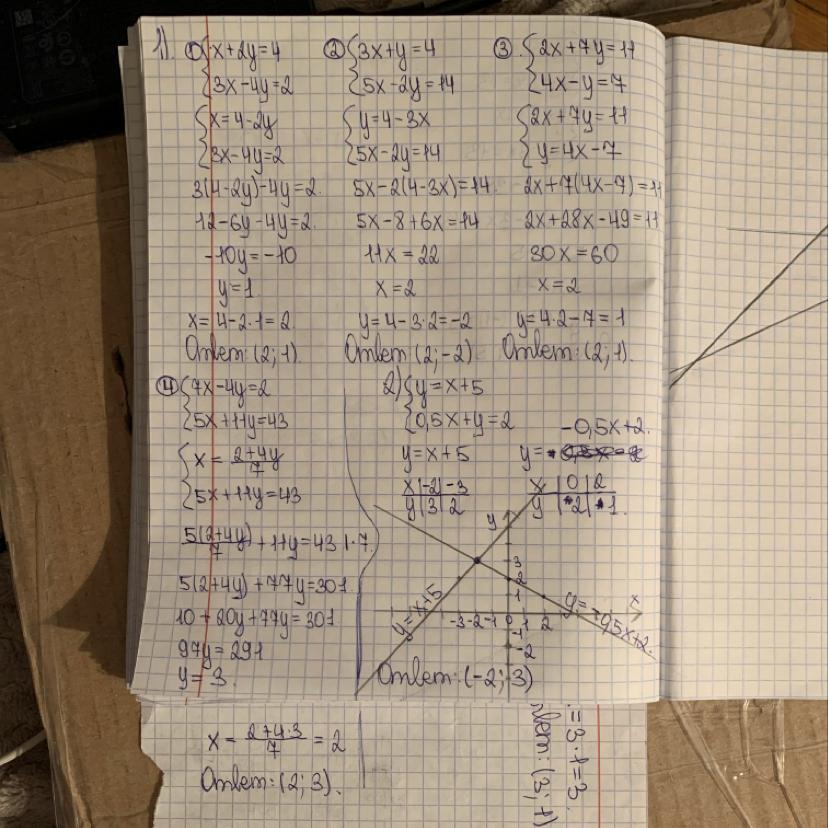 1).
① {x+2y=4
{3x-4y=2
{x=4-2y
{3x-4y=2
3(4-2y)-4y=2
12-6y-4y=2
-10y=-10
y=1
x=4-2·1=2
Ответ:(2;1)
② {3x+y=4
{5x-2y=14
{y=4-3x
{5x-2y=14
5x-2(4-3x)=14
5x-8+6x=14
11x=22
x=2
y=4-3·2=-2
Ответ:(2;-2)
③ {2x+7y=11
{4x-y=7
{2x+7y=11
{y=4x-7
2x+7(4x-7)=11
2x+28x-49=11
30x=60
x=2
y=4·2-7=1
Ответ:(2;1).
④ {7x-4y=2
{5x+11y=43
{x=(2+4y)/7
{5x+11y=43
5(2+4y)/7+11y=43 |·7
5(2+4y)+77y=301
10+20y+77y=301
97y=291
y=3.
x=(2+4·3)/7=2
Ответ:(2;3).
2) {y=x+5
{0,5x+y=2
y=x+5
x|-2|-3
y|3|2
-0,5x+2.
y=
x|0|2
y|2|1.
y
3
2
1
x
-3-2-1 0 1 2
-1
-2
y=x+5
y=-0,5x+2.
Ответ:(-2;3)
=3·1=3.
Ответ:(3;1)